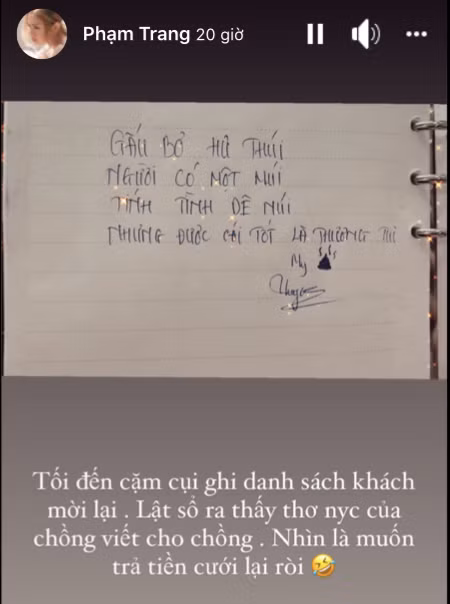 Phạm Trang 20 giờ
GẤU BỞ HƯ THÚI
NGƯỜI CÓ MỘT MÚI
TÍNH TÌNH DÊ NÚI
NHƯNG ĐƯỢC CÁI TỐT LÀ THƯƠNG
My
Tối đến cặm cụi ghi danh sách khách
mời lại . Lật sổ ra thấy thơ nyc của
chồng viết cho chồng . Nhìn là muốn
trả tiền cưới lại ròi 🤣